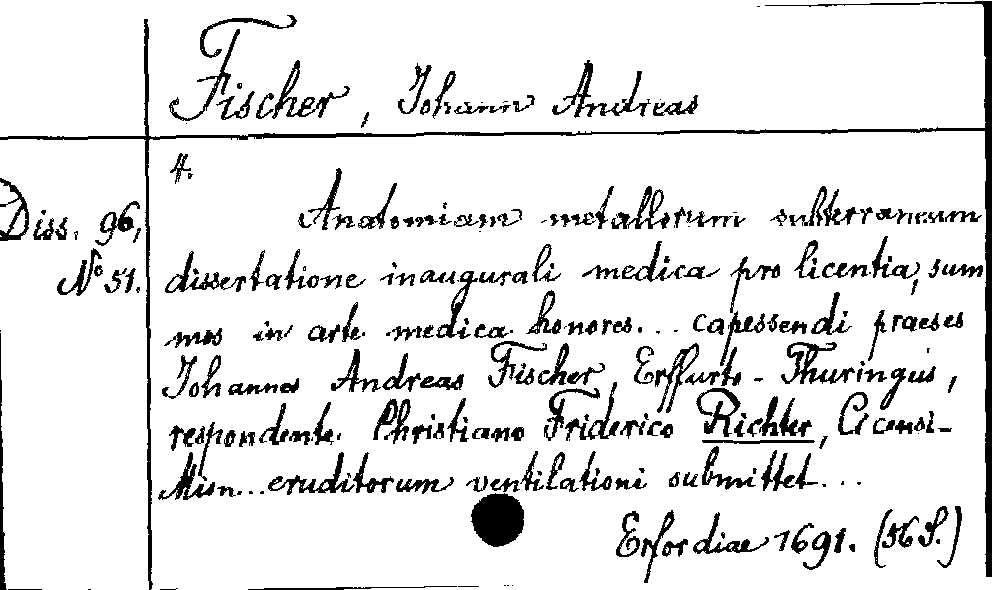 Fischer, Johann Andreas
4.
Diss. 96,
No 51.
Anatomiam metallorum subterraneum
dissertatione inaugurali medica pro licentia, sum
mos in arte medica honores... capessendi praeses
Johannes Andreas Fischer, Erffurto-Thuringus,
respondente Christiano Friderico Richter, Cicensi-
Misn...eruditorum ventilationi submittet...
Erfordiae 1691. (56 S.)